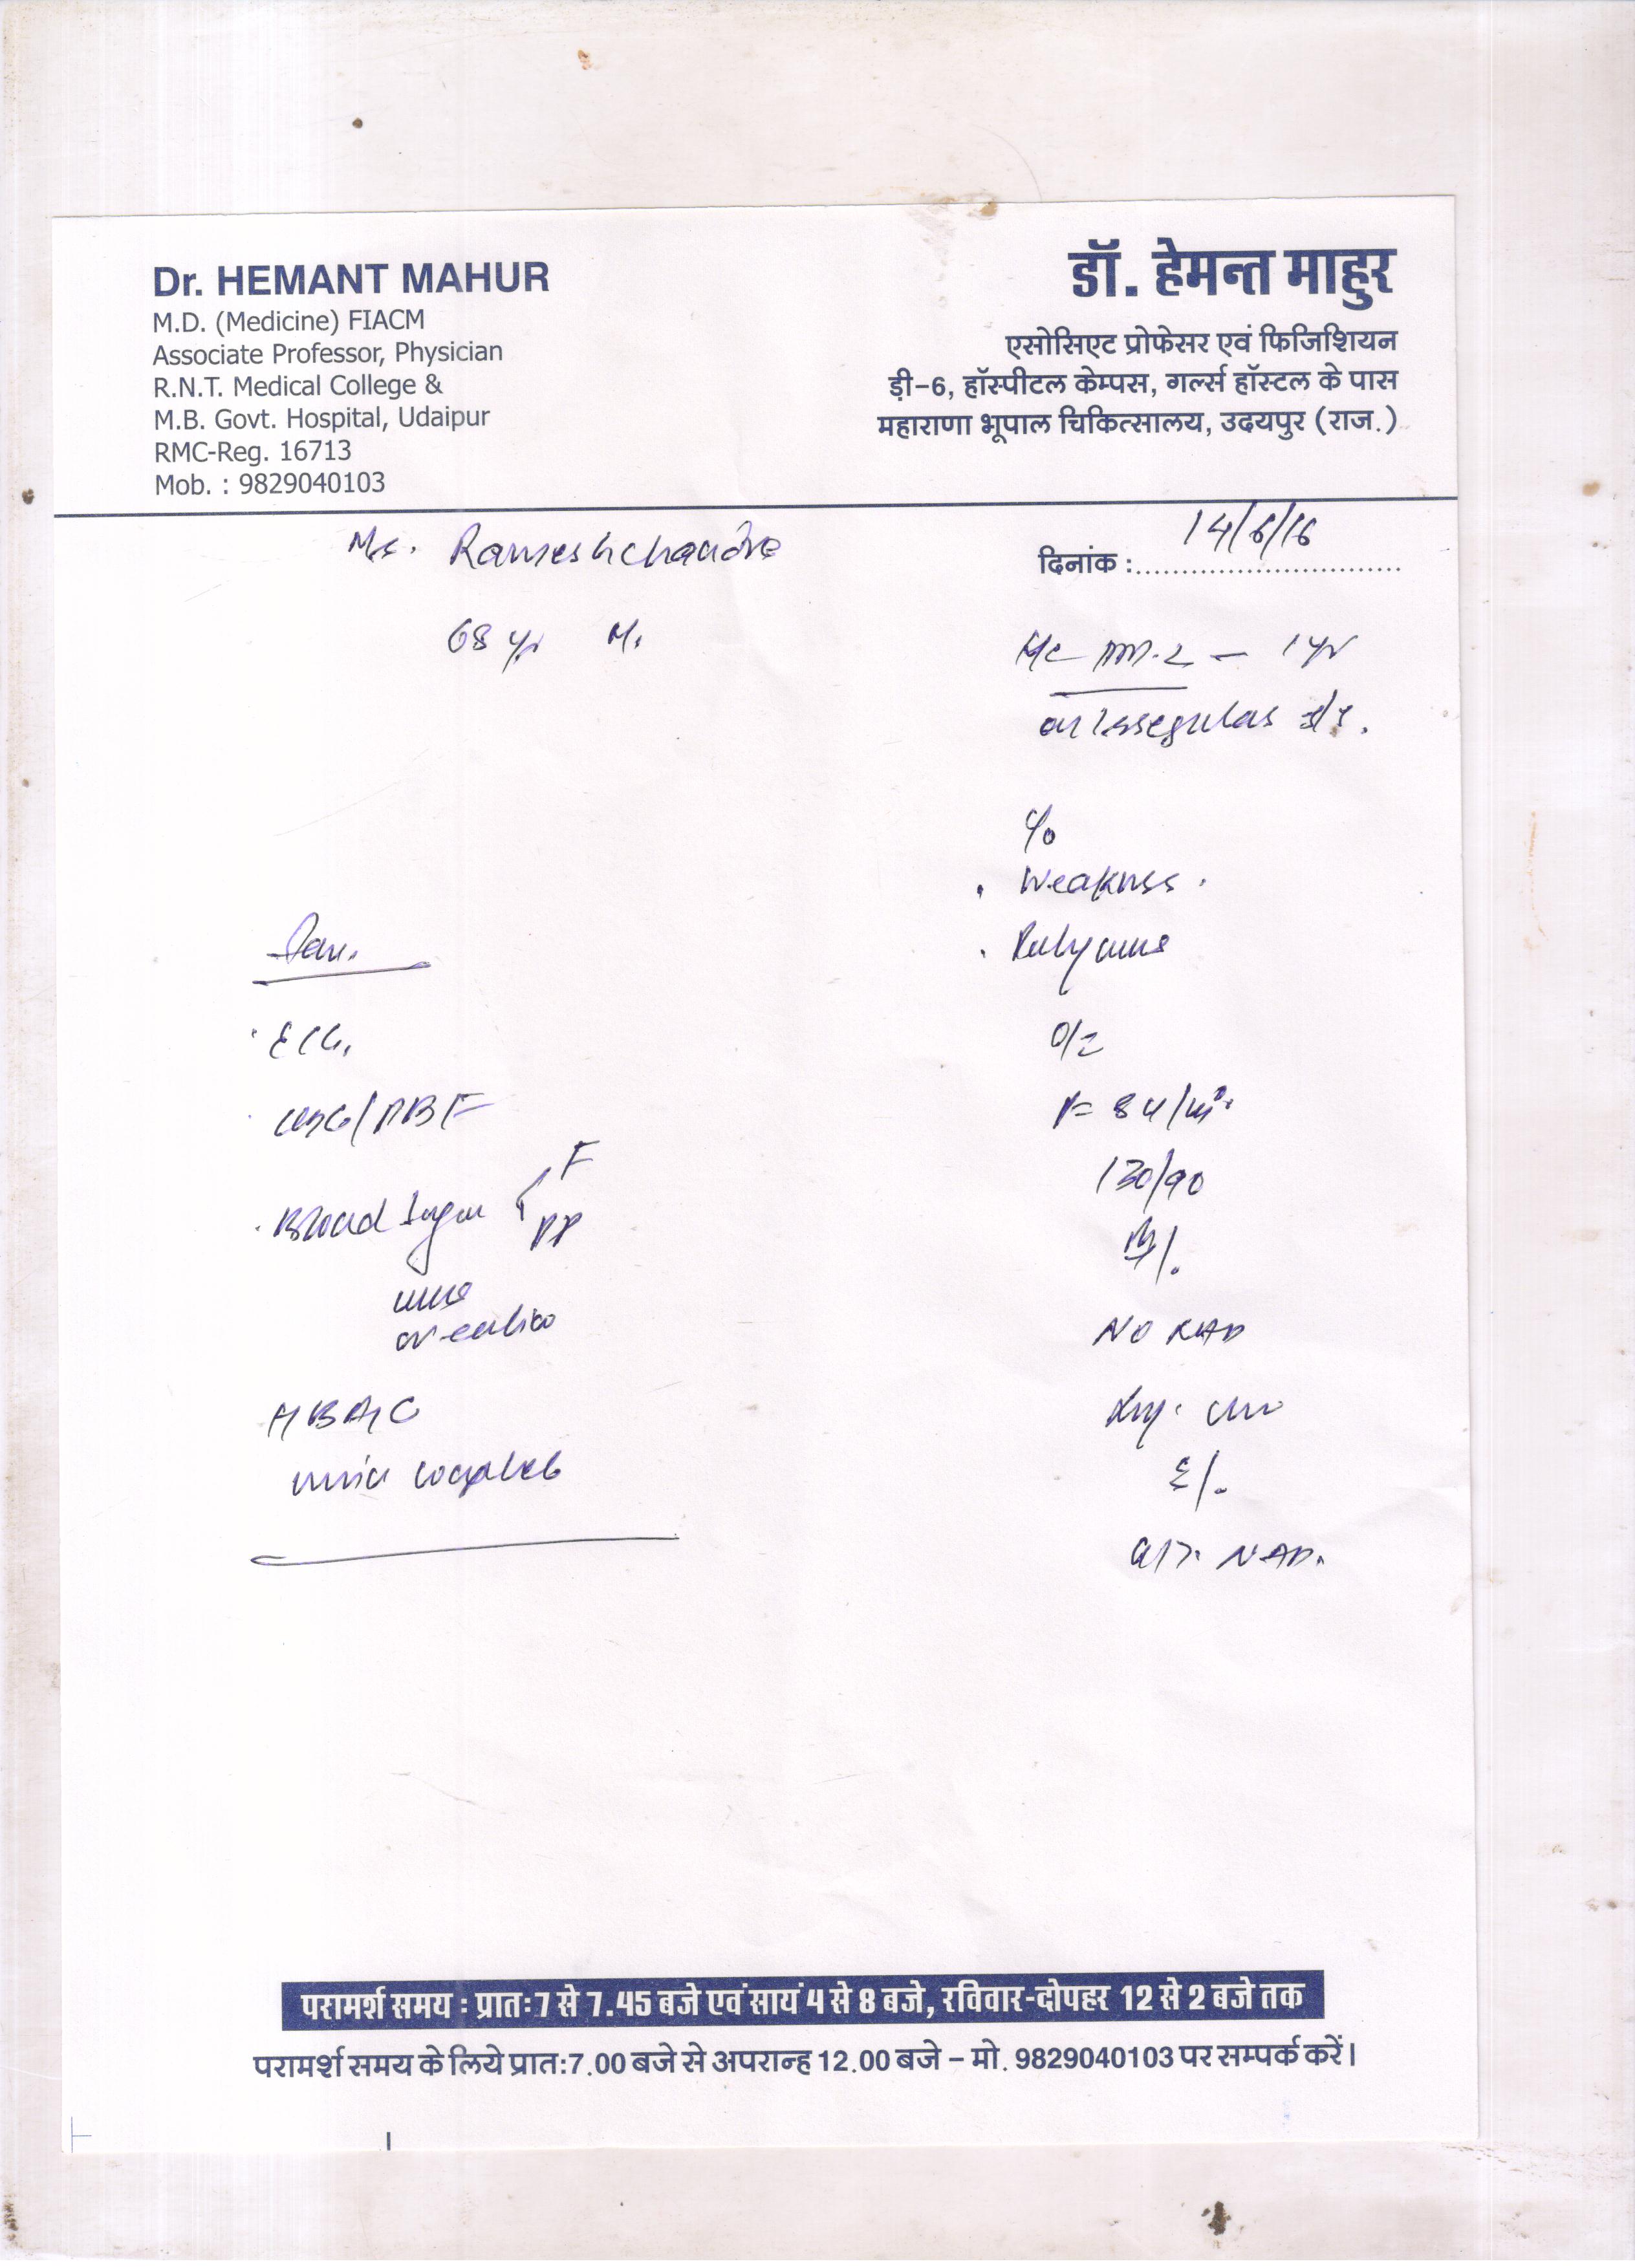 Dr. HEMANT MAHUR
M.D. (Medicine) FIACM
Associate Professor, Physician
R.N.T. Medical College &
M.B. Govt. Hospital, Udaipur
RMC-Reg. 16713
Mob. : 9829040103
डॉ. हेमन्त माहुर
एसोसिएट प्रोफेसर एवं फिजिशियन
ड़ी-6, हॉस्पीटल केम्पस, गर्ल्स हॉस्टल के पास
महाराणा भूपाल चिकित्सालय, उदयपुर (राज.)
Mr. Rameshchandra
दिनांक : 14/6/16
68 yr M.
DM.2 - 1 yr
on Irregular
c/o
. Weakness .
.
O/E
P= 84/
130/90
NAD
NAD.
. ECG,
. /PBF
. Blood Sugar F
PP
HBA1C
complete
परामर्श समय : प्रातः 7 से 7.45 बजे एवं सायं 4 से 8 बजे, रविवार-दोपहर 12 से 2 बजे तक
परामर्श समय के लिये प्रातः7.00 बजे से अपरान्ह 12.00 बजे – मो. 9829040103 पर सम्पर्क करें।